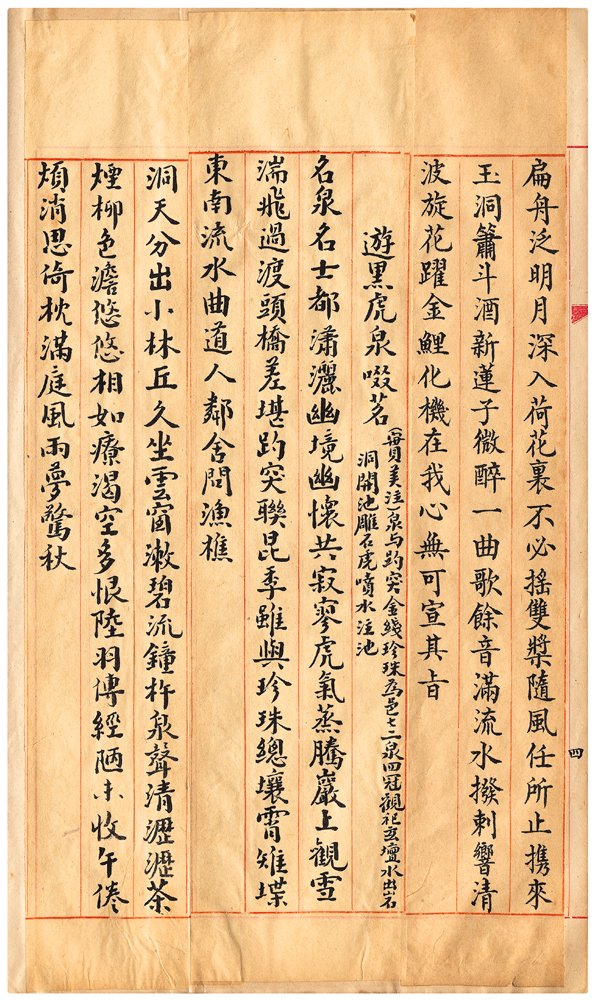 扁舟泛明月深入荷花裏不必搖雙槳隨風任所止攜來
玉洞簫斗酒新蓮子微醉一曲歌餘音滿流水撥刺響清
波旋花躍金鯉化機在我心無可宣其旨
遊黑虎泉啜茗
(實美注)泉与趵突金綫珍珠為邑七二泉四冠觀祀玄壇水出岩
洞開池雕石虎噴水注池
名泉名士都瀟灑幽境幽懷共寂寥虎氣蒸騰巖上觀雪
湍飛過渡頭橋差堪趵突聯昆季雖與珍珠總壤霄雉堞
東南流水曲道人鄰舍問漁樵
洞天分出小林丘久坐雲窗漱碧流鐘杵泉聲清瀝瀝茶
煙柳色澹悠悠相如療渴空多恨陸羽傳經陋未收午倦
煩消思倚枕滿庭風雨夢驚秋
四